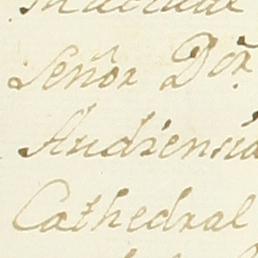 Señor Dor.
Audiensia
Cathedral